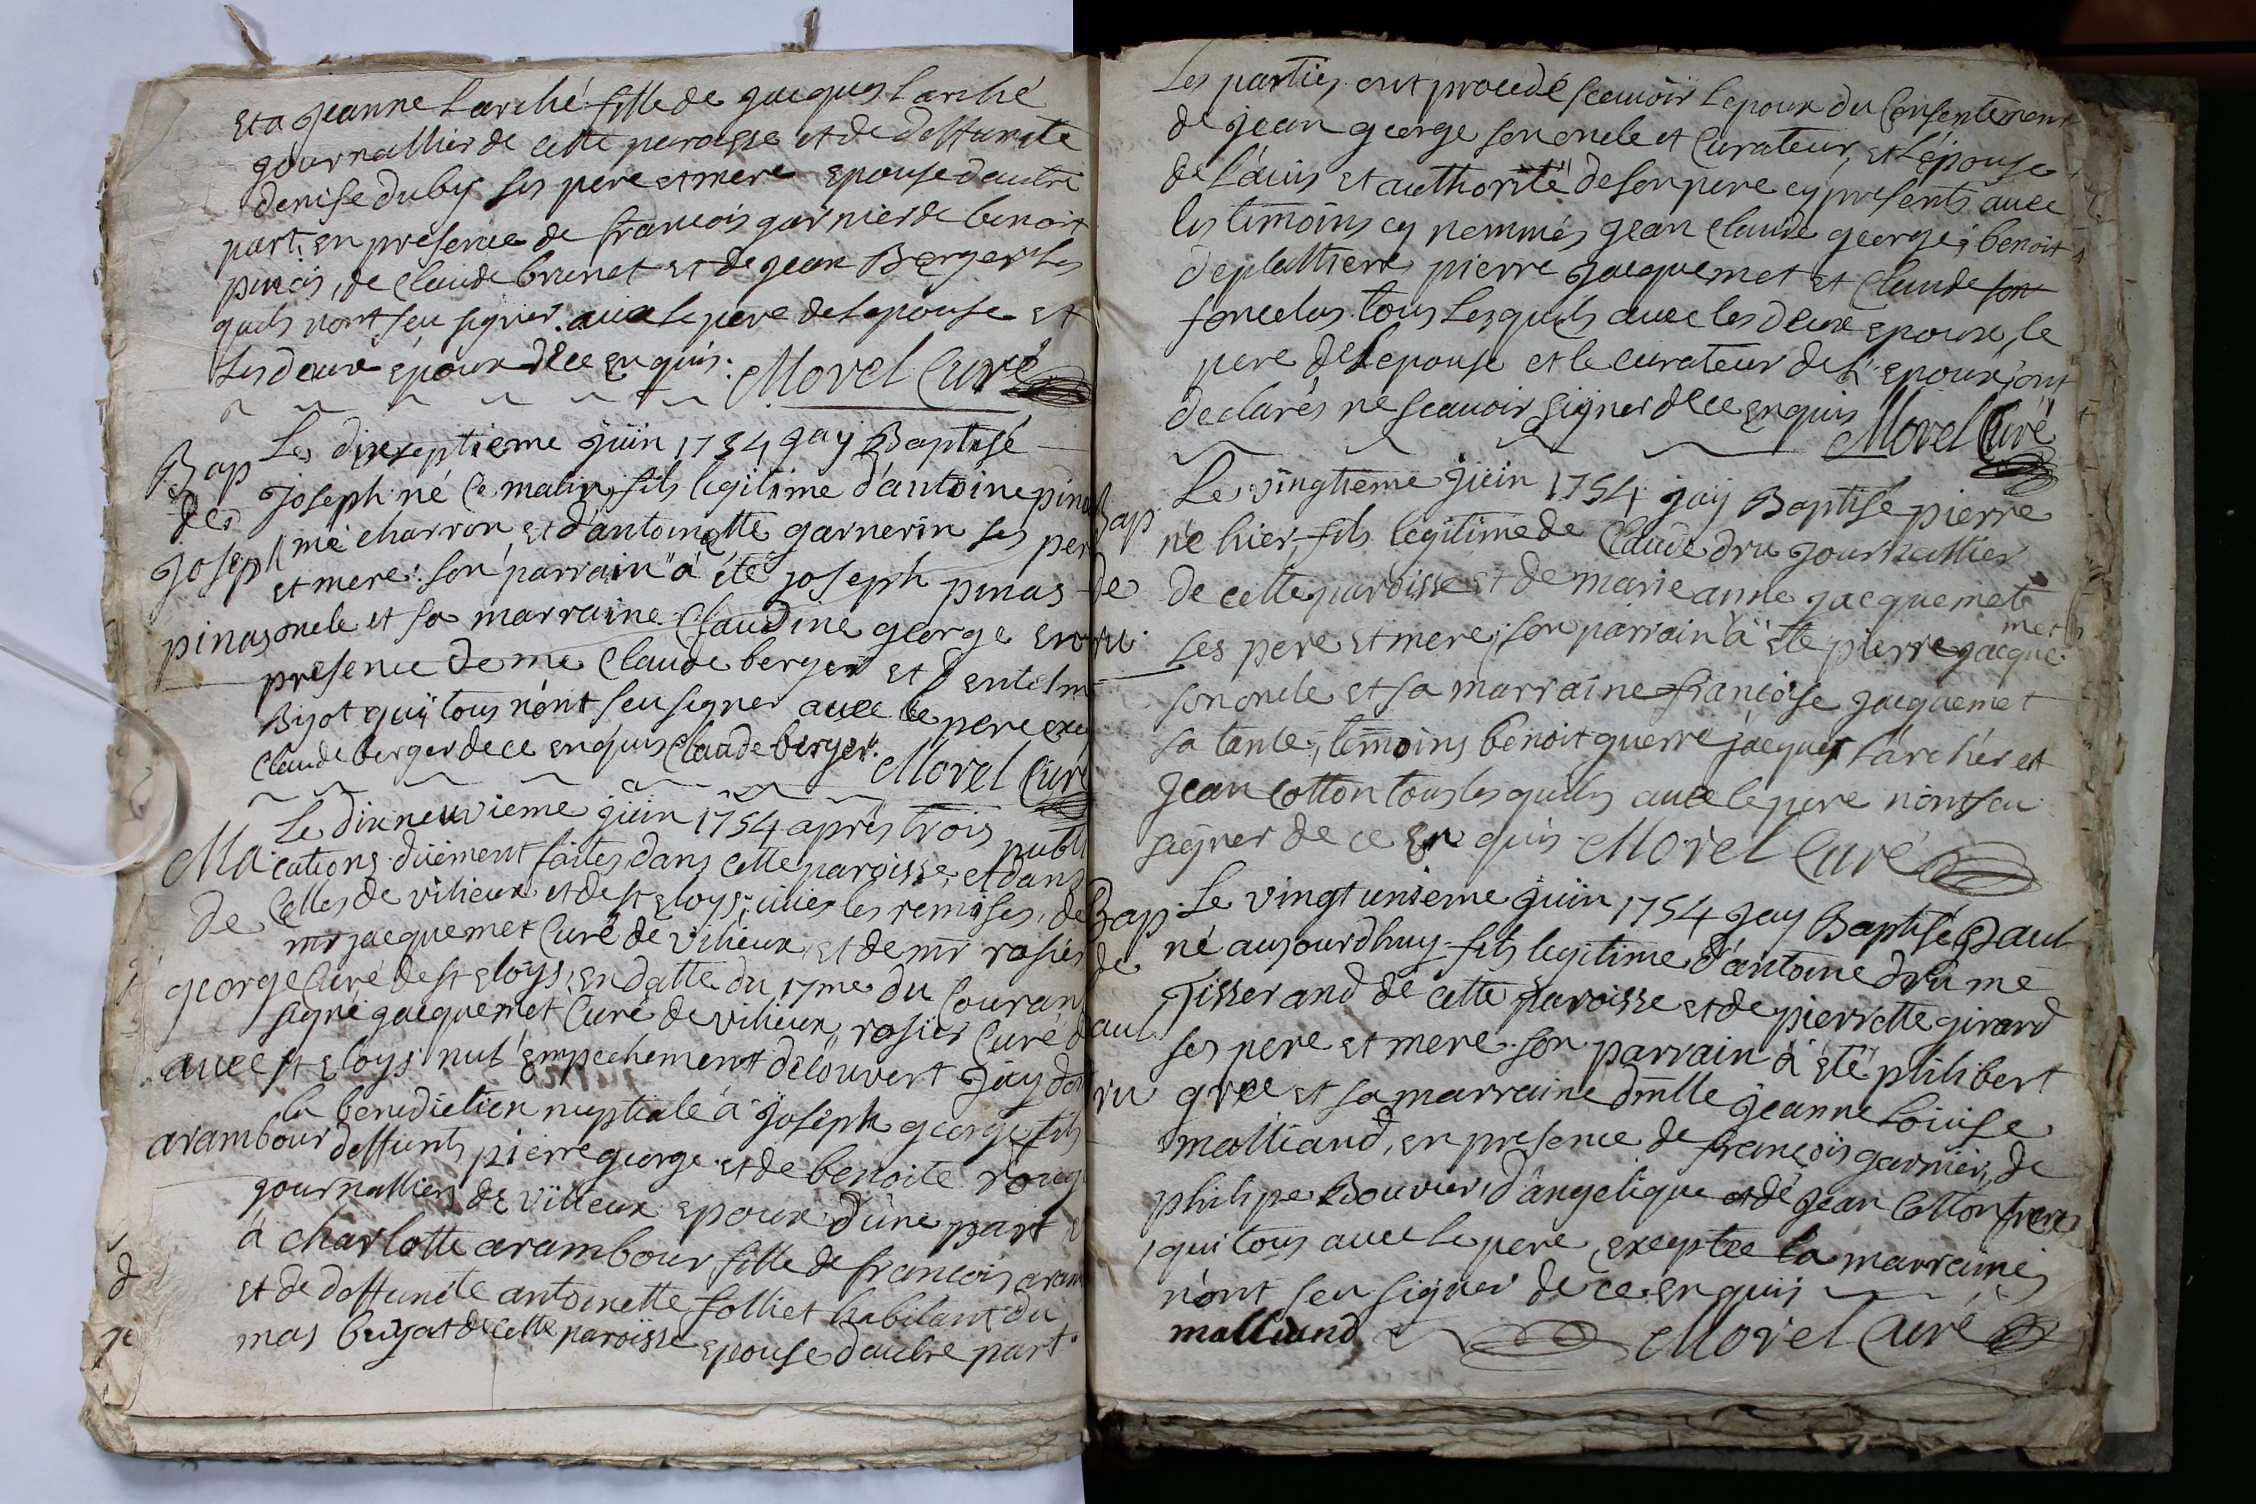 Et a Jeanne Larché fille de jacques Larché
journallier de cette paroisse et de deffuncte
denise dubis ses pere et mere epouse d'autre
part, en presence de francois garnier de benoit
pinas, de Claude brunet et de jean Berger les
quels n'ont seu signer avec le pere de l'epouse et
les deux époux de ce enquis. Morel Curé
Le dixseptieme juin 1754 jay Baptisé
Bap
Joseph né ce matin fils legitime d'antoine pinas
de
me charron et d'antoinette garnerin ses pere
Joseph
et mere. son parrain a été joseph pinas
pinas
oncle et sa marraine Claudine george en
presence de me Claude berger et
Bizot qui tous n'ont seu signer avec le pere
Claude berger de ce enquis Claude berger. Morel Curé
Le dixneuvieme juin 1754 après trois publi
Ma
cations düement faites dans cette paroisse, et dans
de
Celles de vilieux et de st eloys, vües les remises, de
mr jacquemet Curé de vilieux et de mr rosier
george
Curé de st eloys, en datte du 17me du Courant
signé jacquemet Curé de vilieux, rosier Curé d
avec
st eloys nul empechement decouvert j'ay donné
la benediction nuptiale à joseph george fils
arambour
deffunts pierre george et de benoite
journallier de vilieux epoux d'une part
à charlotte arambour fille de francois aram
et de deffuncte antoinette folliet habitant du
mas buyat de cette paroisse epouse d'autre part.
Les parties ont procedé scauoir l'epoux du Consentement
de jean george son oncle et Curateur, et l'épouse
de l'auis et authorité de son pere cy presents auec
les témoins cy nommés jean Claude george, benoit
deplattiere pierre jacquemet et Claude son
foncelas tous lesquels auec les deux epoux, le
pere de l'epouse et le curateur de l'epoux, ont
declarés ne scauoir signer de ce enquis Morel Curé
Le vingtieme juin 1754 jaÿ Baptise pierre
Bap
né hier, fils legitime de Claude dru journallier
de
de cette paroisse et de marie anne jacquemet
ses pere et mere, son parrain à été pierre jacque
met
ru
son oncle et sa marraine francoise jacquemet
sa tante, témoins benoit guerre jacques l'archer et
jean cotton tous lesquels auec le pere n'ont seu
signer de ce en quis Morel Curé
Le vingt unieme juin 1754 jay Baptisé Paul
Bap
né aujourdhuy fils legitime d'antoine dru me
de
Tisserand de cette paroisse et de pierrette girard
aul
ses pere et mere. son parrain a été philibert
ru
gree et sa marraine dmlle jeanne Loüise
malliand, en presence de françois garnier, de
philipe Bouvier, d'angelique et de jean Cotton freres
qui tous auec le pere exceptée la marraine
n'ont seu signer de ce enquis
malliand Morel Curé